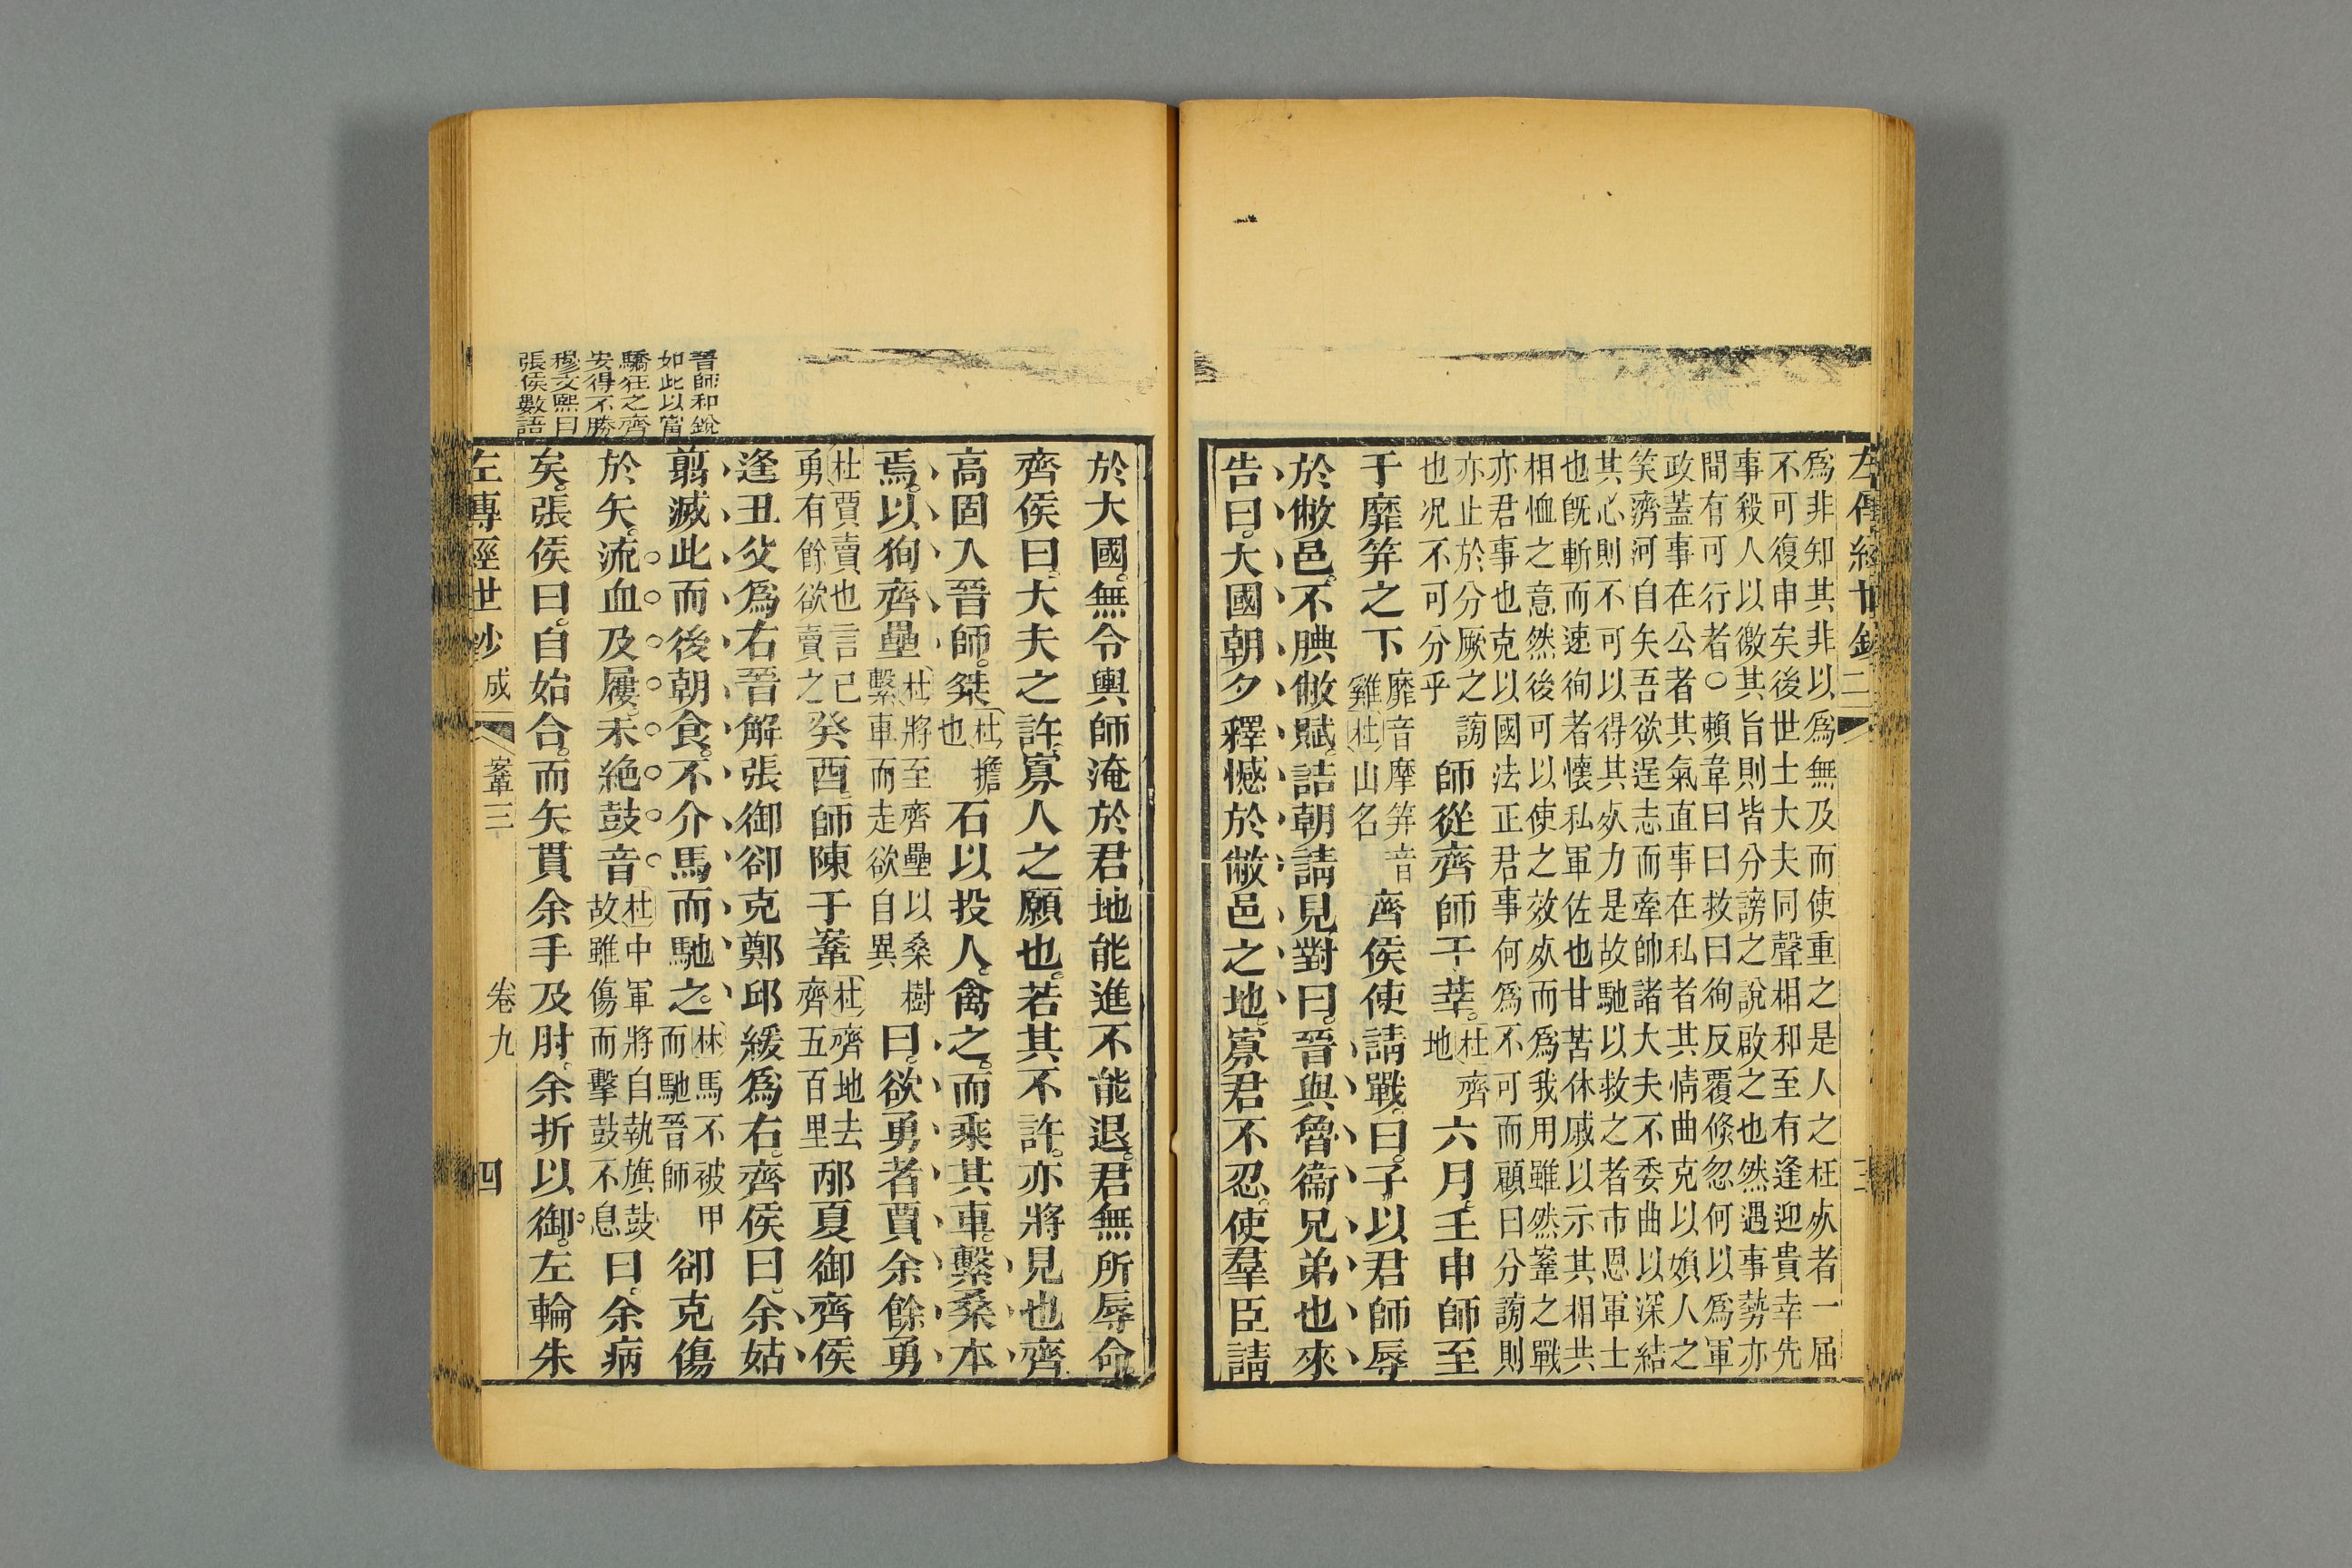 爲非知其非以爲無及而使重之是人之枉㱕者一屈
不可復申矣後世士大夫同聲相和至有逢迎貴幸先
事殺人以徼其旨則皆分謗之說啟之也然遇事勢亦
間有可行者○賴韋曰曰救曰徇反覆倏忽何以爲軍
政蓋事在公者其氣直事在私者其情曲克以嬪人之
笑濟河自矢吾欲逞志而牽帥諸大夫不委曲以深結
其心則不可以得其㱕力是故馳以救之者市恩軍士
也旣斬而速徇者懷私軍佐也甘苦休戚以示其相共
相恤之意然後可以使之效㱕而爲我用雖然鞌之戰
亦君事也克以國法正君事何爲不可而顧曰分謗則
亦止於分厥之謗
也况不可分乎
師從齊師于莘。杜齊
地
六月壬申師至
于靡笄之下
靡音摩笄音
雞杜山名
齊侯使請戰曰。子以君師辱
於敝邑。不腆敝賦。詰朝請見對曰。晉與魯衞兄弟也來
告曰。大國朝夕釋憾於敝邑之地。寡君不忍。使羣臣請
晉師和銳
如此以當
驕狂之齊
安得不勝
穆文熙曰
張侯數語
於大國。無令輿師淹於君地能進不能退。君無所辱命。
齊侯曰。大夫之許。寡人之願也。若其不許。亦將見也齊
高固入晉師。桀
杜擔
也
石以投人。禽之。而乘其車。繫桑本
焉。以狥齊壘
杜將至齊壘以桑樹
繫車而走欲自異
曰。欲勇者賈。余餘勇
杜賈賣也言己
勇有餘欲賣之
癸酉。師陳于鞌
杜齊地去
齊五百里
邴夏御齊侯
逢丑父爲右晉解張御卻克鄭邱緩爲右。齊侯曰。余姑
翦滅此而後朝食。不介馬而馳之。
林馬不被甲
而馳晉師
卻克傷
於矢。流血及屨。未絕鼓音
杜中軍將自執旗鼓
故雖傷而擊鼓不息
曰。余病
矣。張侯曰。自始合。而矢貫余手及肘。余折以御。左輪朱
左傳經世鈔 成 鞌三 卷九 四